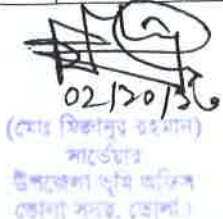 02/20/26
(মোঃ মিজানুর রহমান)
সার্ভেয়ার
উপজেলা ভূমি অফিস
ভোলা সদর, ভোলা।